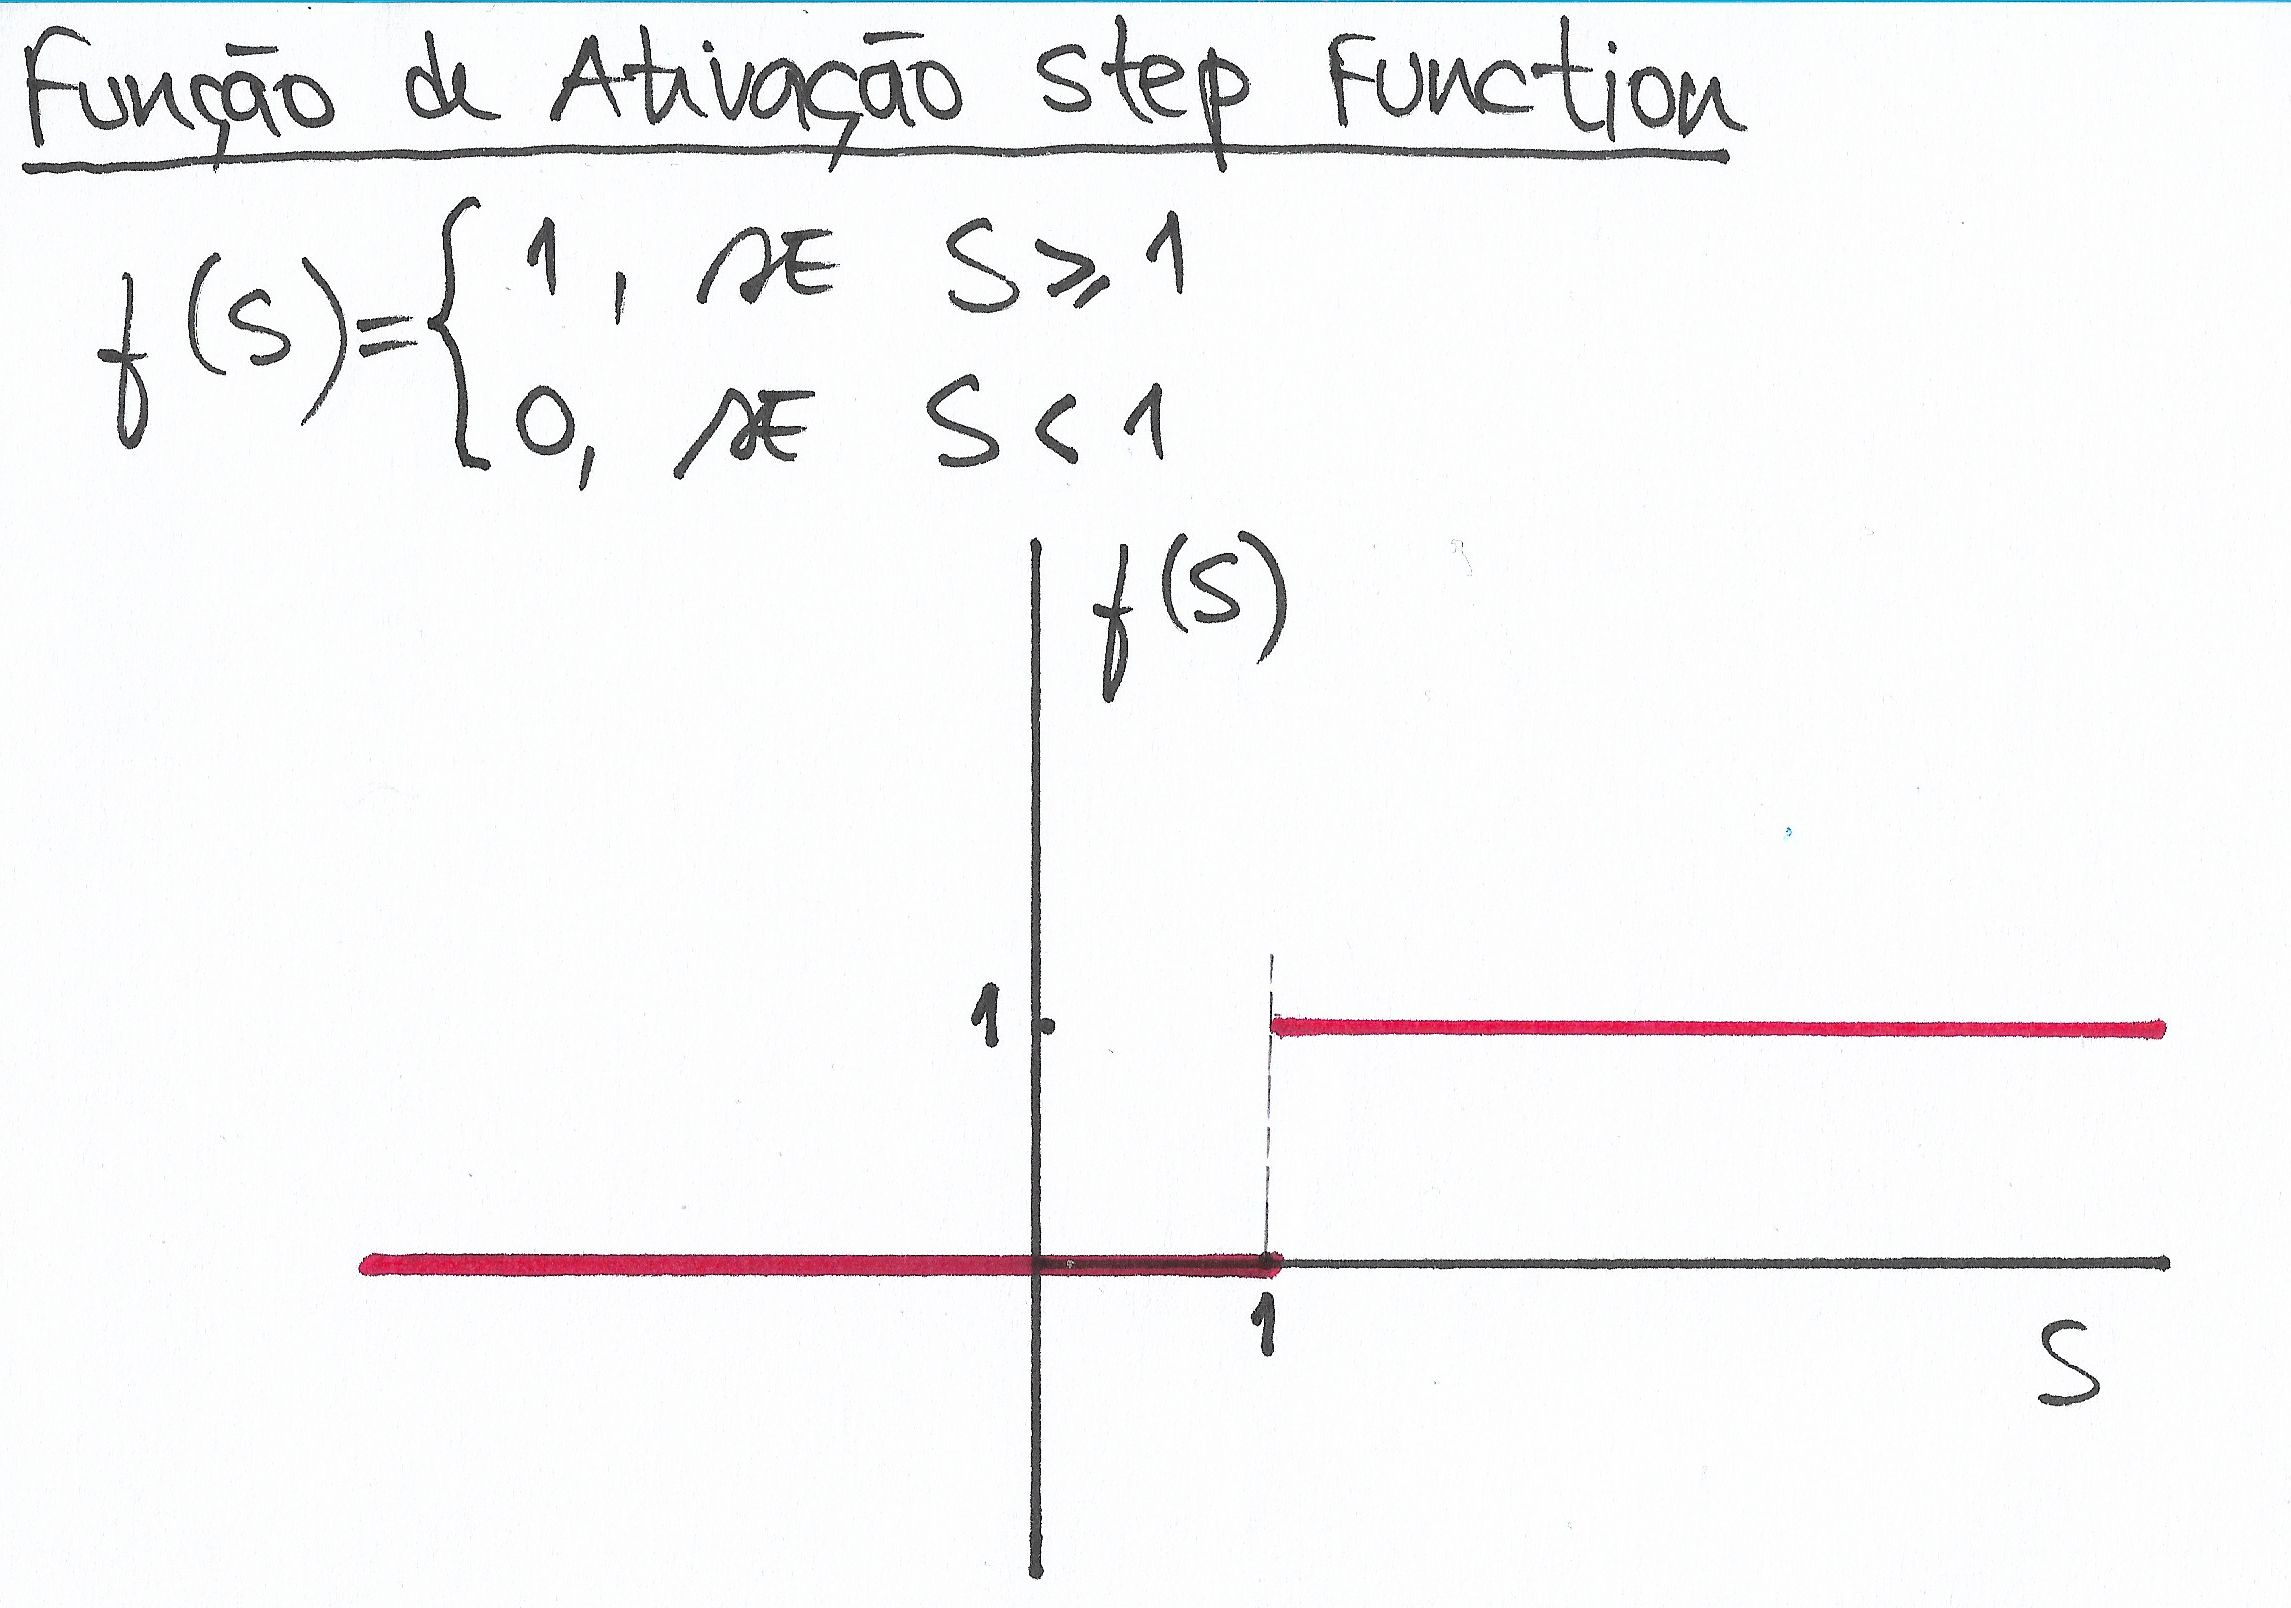 Função de Ativação Step Function
f(S)= { 1, SE S ⩾ 1
0, SE S < 1
f(S)
1
1
S